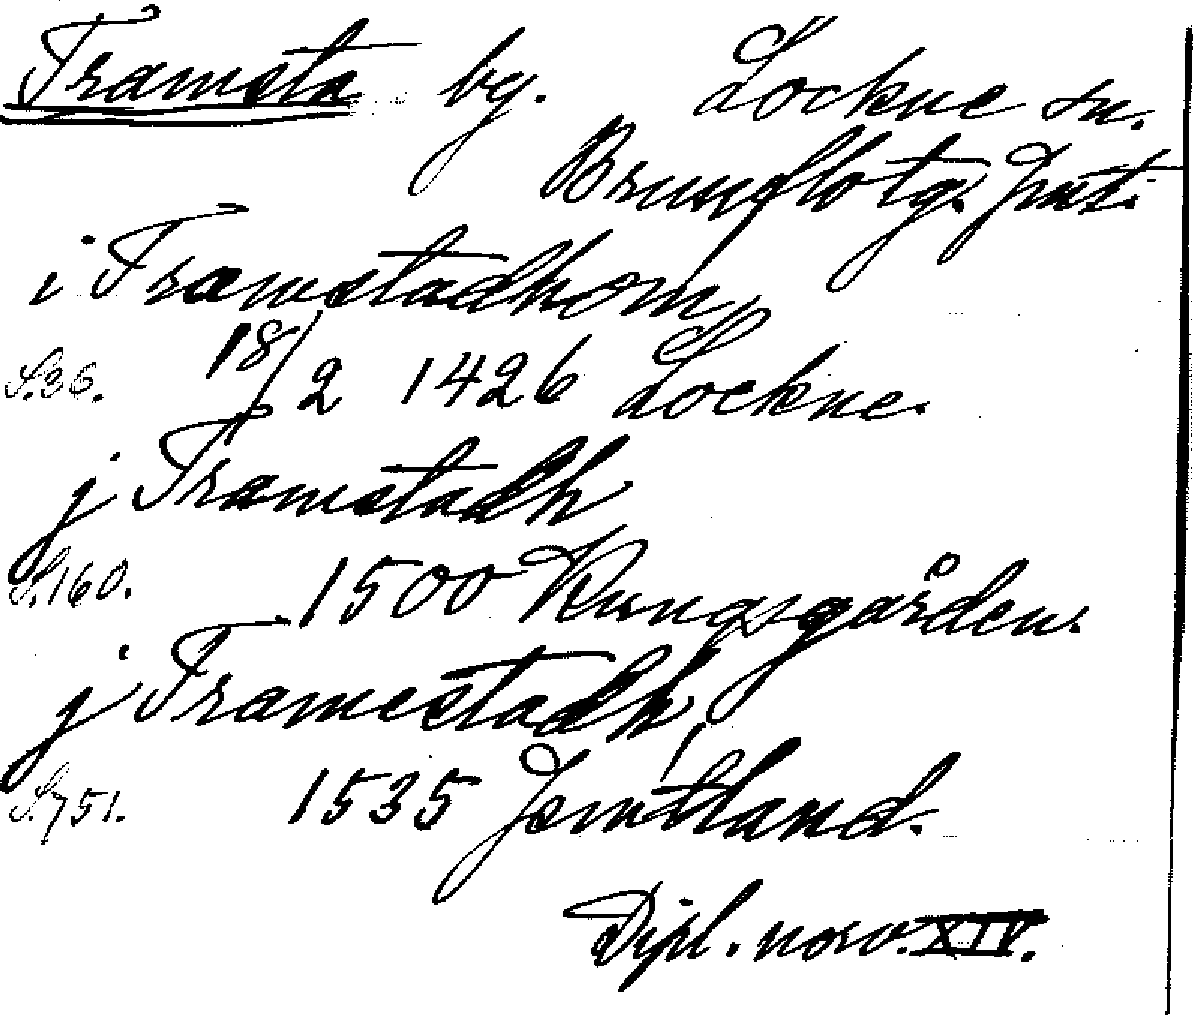 Tramsta by. Lockne sn.
Brunflo tg. Jmt.
i Tramstadhom
S.36. 18/2 1426 Lockne.
j Tramstadh
S.160. 1500 Kungsgården.
j Tramestadh
S.751. 1535 Jemtland.
Dipl. norv. XIV.